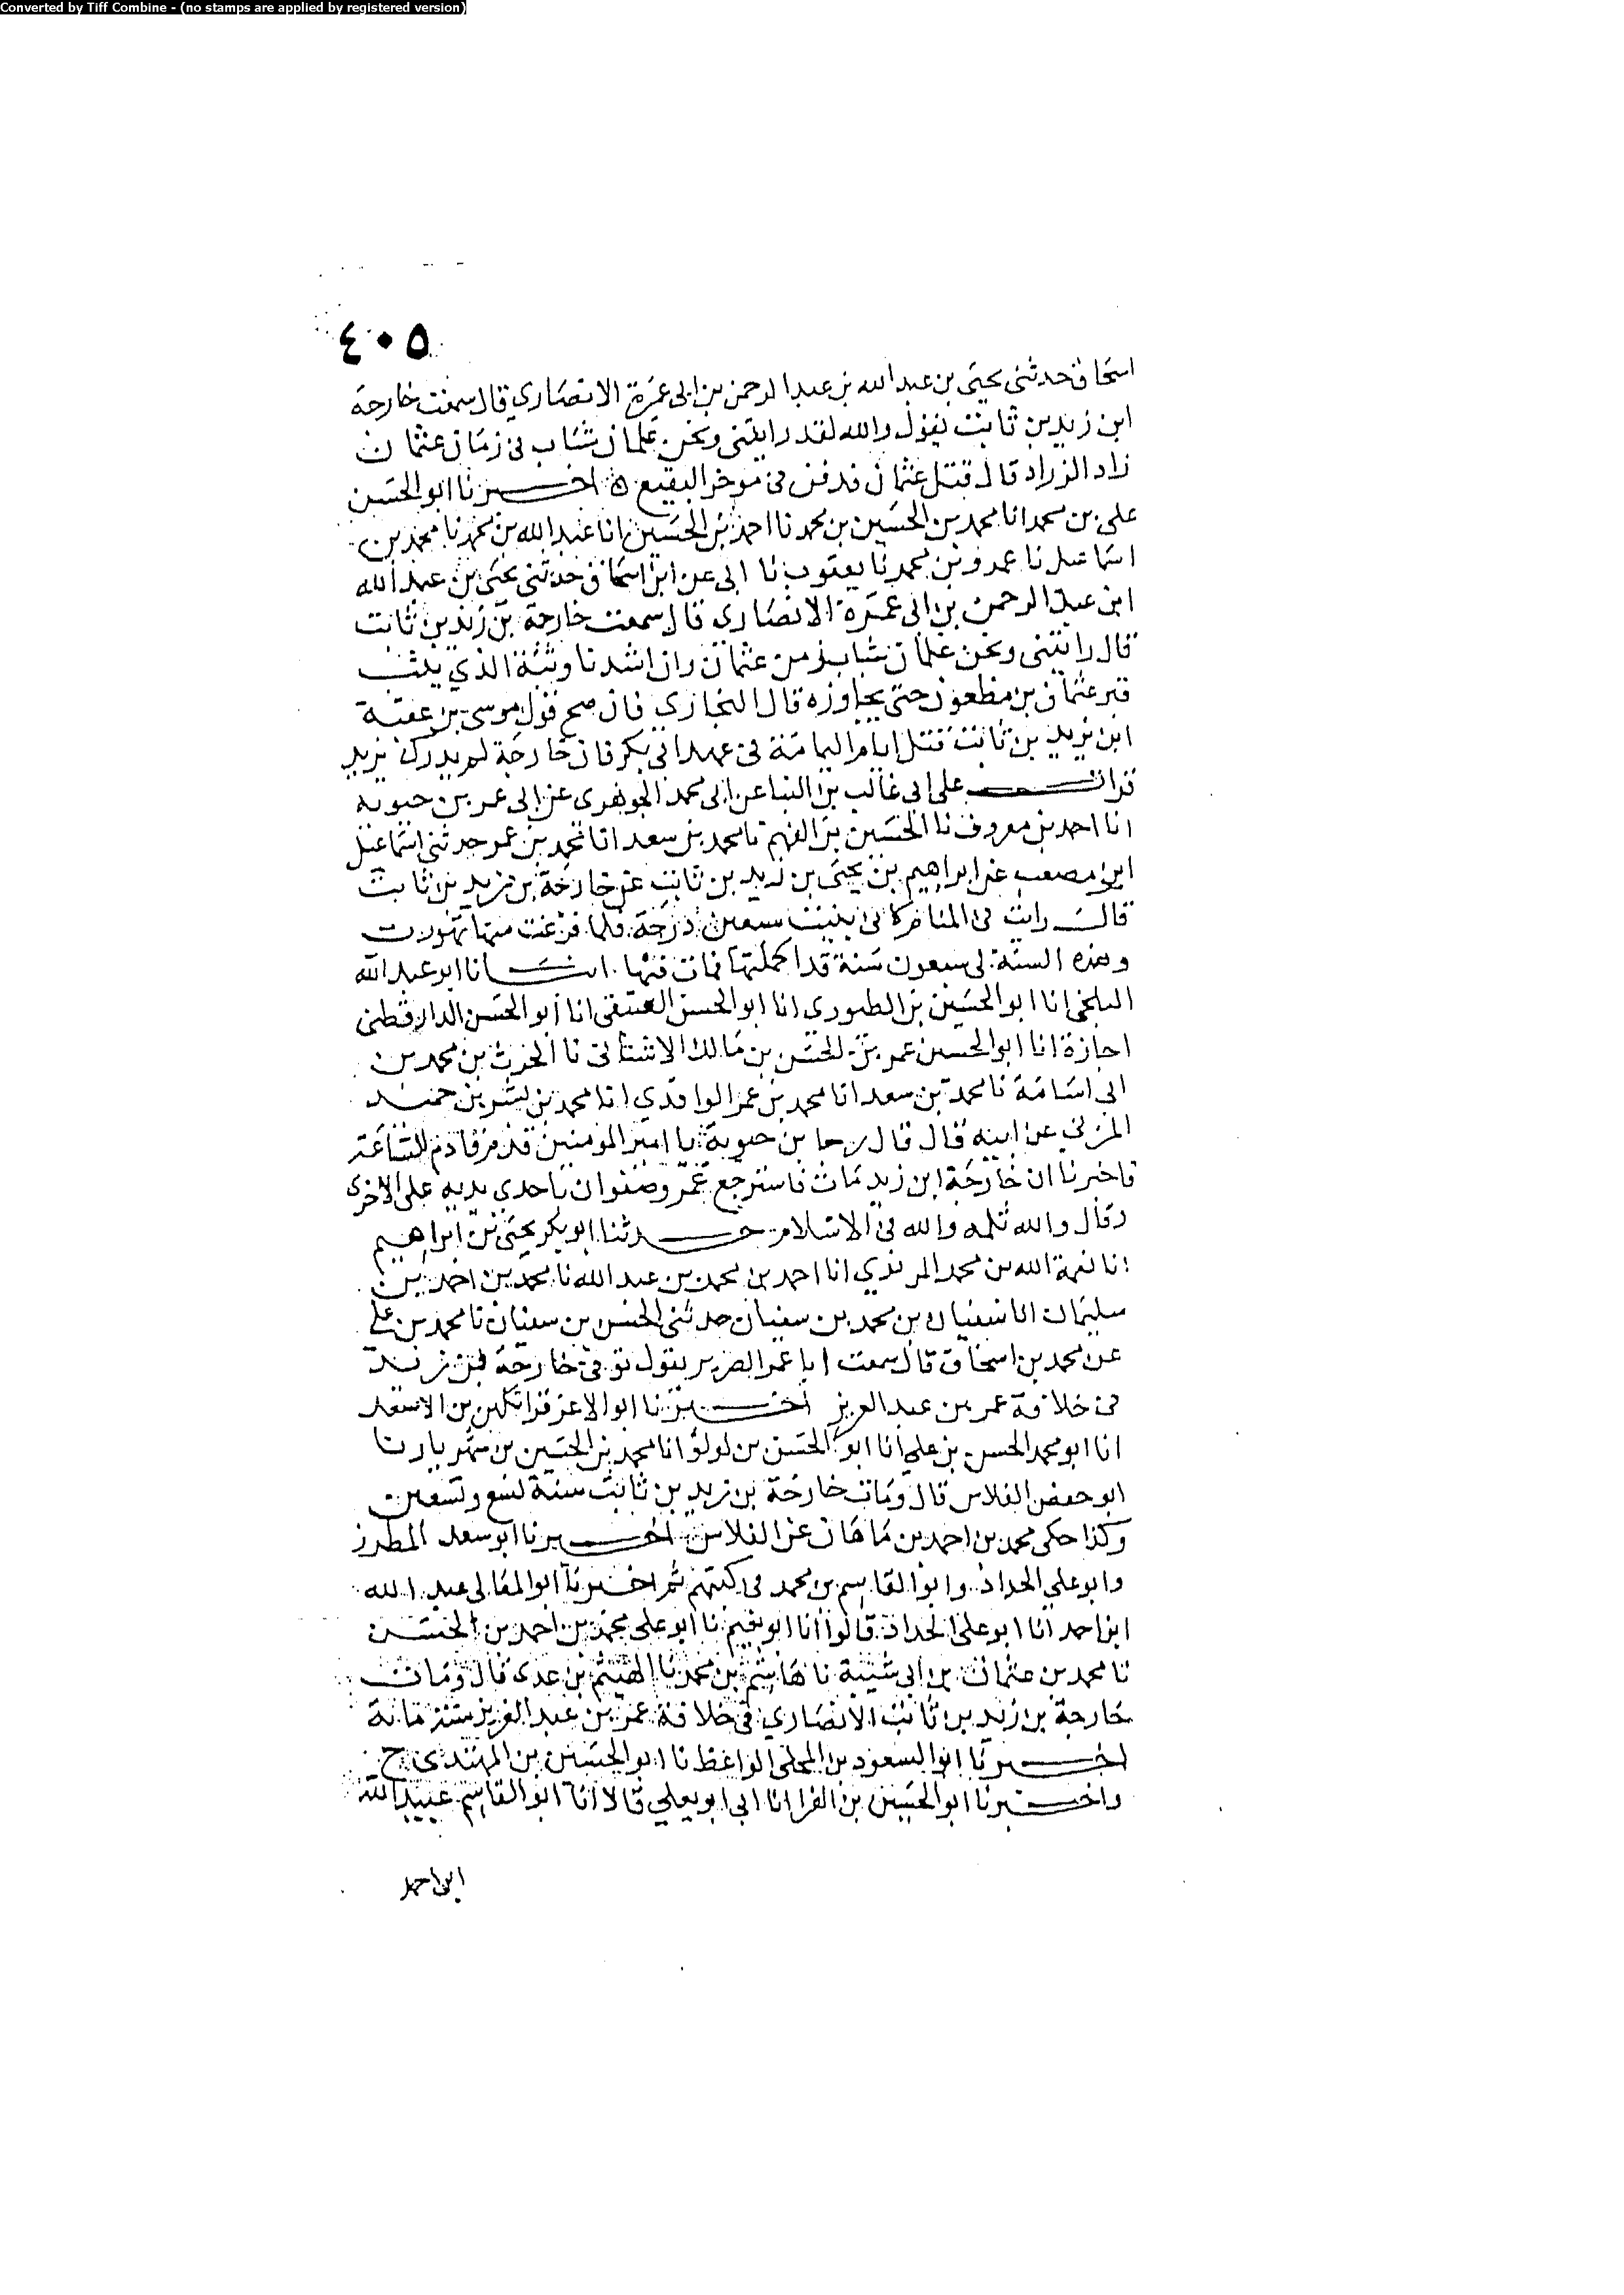 Converted by Tiff Combine - (no stamps are applied by registered version)
٤٠٥
اسحاق حدثنى يحيى بن عبد الله بن عبد الرحمن بن ابى عمرة الانصاري قال سمعت خارجة
ابن زيد بن ثابت يقول والله لقد رايتنى ونحن غلمان شباب فى زمان عثمان
زاد الزراد قال قتل عثمان فدفن فى موخر البقيع ه اخبرنا ابو الحسن
على بن محمد انا محمد بن الحسين بن محمد نا احمد بن الحسين انا عبد الله بن محمد نا محمد بن
اسماعيل نا عمرو بن محمد نا يعقوب نا ابى عن ابن اسحاق حدثنى يحيى بن عبد الله
ابن عبد الرحمن بن ابى عمرة الانصاري قال سمعت خارجة بن زيد بن ثابت
قال رايتنى ونحن غلمان شباب زمن عثمان وان اشدنا وثبة الذي يثب
قبر عثمان بن مظعون حتى يجاوزه قال البخاري فان صح قول موسى بن عقبة
ابن يزيد بن ثابت قتل ايام اليمامة فى عهد ابى بكر فان خارجة لم يدرك يزيد
قرات على ابى غالب بن البنا عن ابى محمد الجوهرى عن ابى عمر بن حيويه
انا احمد بن معروف نا الحسين بن الفهم نا محمد بن سعد انا محمد بن عمر حدثنى اسماعيل
ابن مصعب عن ابراهيم بن يحيى بن زيد بن ثابت عن خارجة بن زيد بن ثابت
قال رايت فى المنام كانى بنيت سبعين درجة فلما فرغت منها تهورت
وهذه السنة لى سبعون سنة قد اكملتها فمات فيها انبانا ابو عبد الله
البلخى انا ابو الحسين بن الطيورى انا ابو الحسن العتيقى انا ابو الحسن الدارقطنى
اجازة انا ابو الحسين عمر بن الحسن بن مالك الاشنانى نا الحرث بن محمد بن
ابى اسامة نا محمد بن سعد انا محمد بن عمر الواقدي انا محمد بن بشر بن حميد
المزنى عن ابيه قال قال رجا بن حيوة يا امير المومنين قدم قادم الساعة
فاخبرنا ان خارجة ابن زيد مات فاسترجع عمر وصفق باحدي يديه على الاخرى
وقال والله ثلمه والله فى الاسلام حدثنا ابو بكر يحيى بن ابراهيم
انا نعمة الله بن محمد المرندي انا احمد بن محمد بن عبد الله نا محمد بن احمد بن
سليمان انا سفيان بن محمد بن سفيان حدثنى الحسن بن سفيان نا محمد بن على
عن محمد بن اسحاق قال سمعت ابا عمر الضرير يقول توفى خارجة بن زيد
فى خلافة عمر بن عبد العزيز اخبرنا ابو الاعز قراتكين بن الاسعد
انا ابو محمد الحسن بن على انا ابو الحسن بن لولو انا محمد بن الحسين بن شهريار نا
ابو حفص الفلاس قال ومات خارجة بن زيد بن ثابت سنة تسع وتسعين
وكذا حكى محمد بن احمد بن ماهان عن الفلاس اخبرنا ابو سعد المطرز
وابو على الحداد وابو القاسم بن محمد فى كتبهم ثم اخبرنا ابو المعالى عبد الله
ابن احمد انا ابو على الحداد قالوا انا ابو نعيم نا ابو على محمد بن احمد بن الحسن
نا محمد بن عثمان بن ابى شيبة نا هاشم بن محمد نا الهيثم بن عدى قال ومات
خارجة بن زيد بن ثابت الانصاري فى خلافة عمر بن عبد العزيز سنة مائة
اخبرنا ابو السعود بن المجلى الواعظ نا ابو الحسين بن المهتدى ح
واخبرنا ابو الحسين بن الفرا انا ابى ابو يعلى قالا انا ابو القاسم عبيد الله
ابن احمد